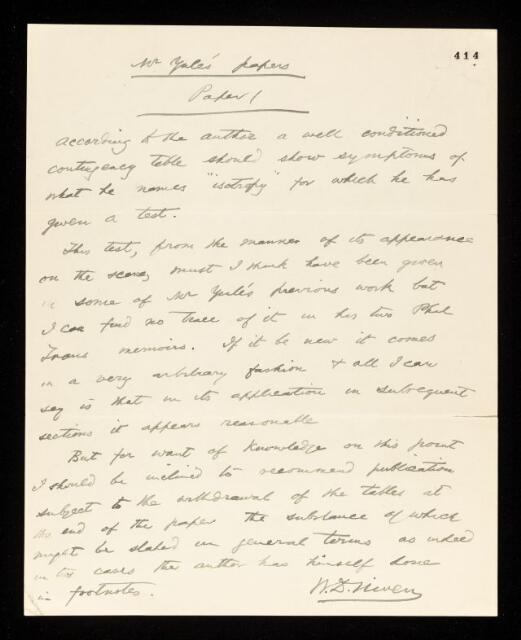 414
Mr Yule's papers
Paper 1
According to the author a well conditioned
contingency table should show symptoms of
what he names "isotropy" for which he has
given a test.
This test, from the manner of its appearance
on the scene, must I think have been given
in some of Mr Yule's previous work but
I can find no trace of it in his two Phil
Trans memoirs. If it be new it comes
in a very arbitrary fashion & all I can
say is that in its application in subsequent
sections it appears reasonable
But for want of knowledge on this point
I should be inclined to recommend publication
subject to the withdrawal of the tables at
the end of the paper the substance of which
might be stated in general terms as indeed
in cases the author has himself done
in footnotes.
W.D. Niven